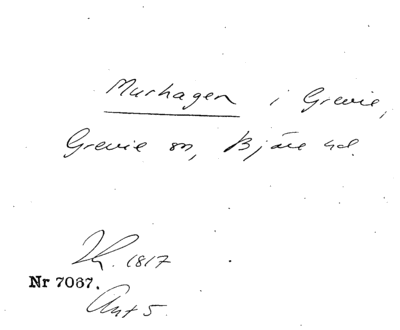 Murhagen i Grevie,
Grevie sn, Bjäre hd.
1817
Nr 7067.
Ant 5.